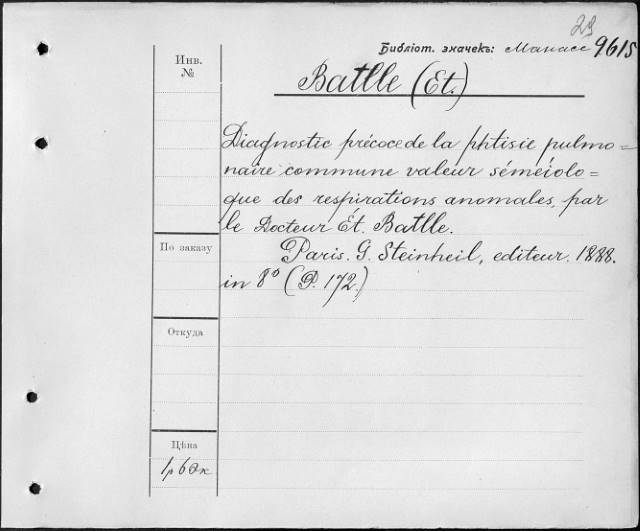 23
Библіот. значекъ: Манасс 9615
Инв.
№
Batlle (Et.)
Diagnostic précoce de la phtisie pulmo=
naire commune valeur séméiolo=
que des respirations anomales, par
le Docteur Ét. Batlle.
Paris. G. Steinheil, editeur. 1888.
in 8° (P. 172.)
По заказу
Откуда
Цѣна
1р 60к